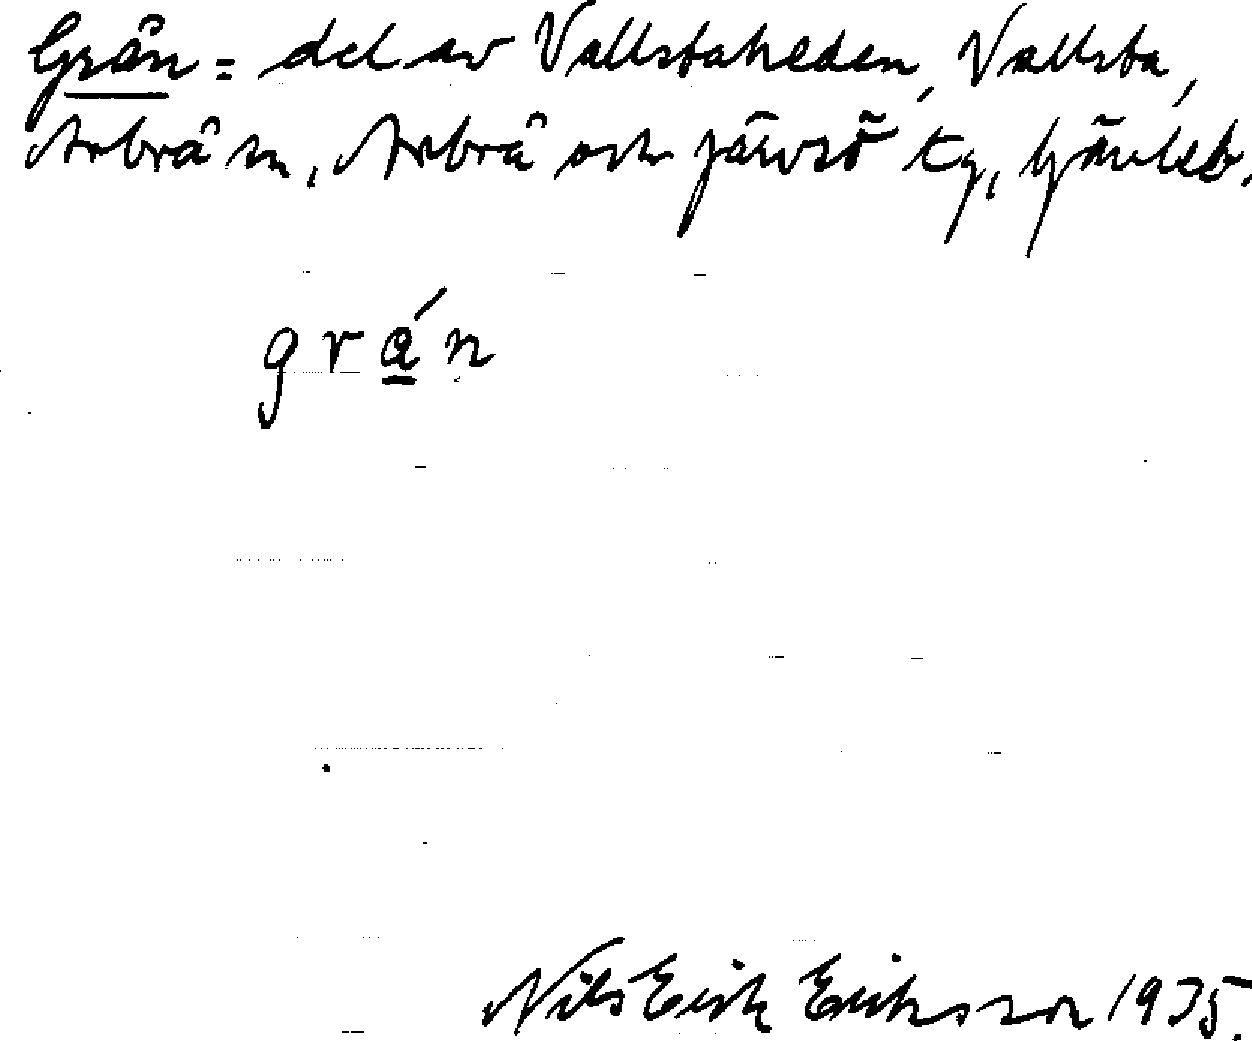 Grån = del av Vallstaheden, Vallsta,
Arbrå sn, Arbrå och Järvsö tg, Gävleb.
grá̱n
Nils Erik Eriksson 1935.